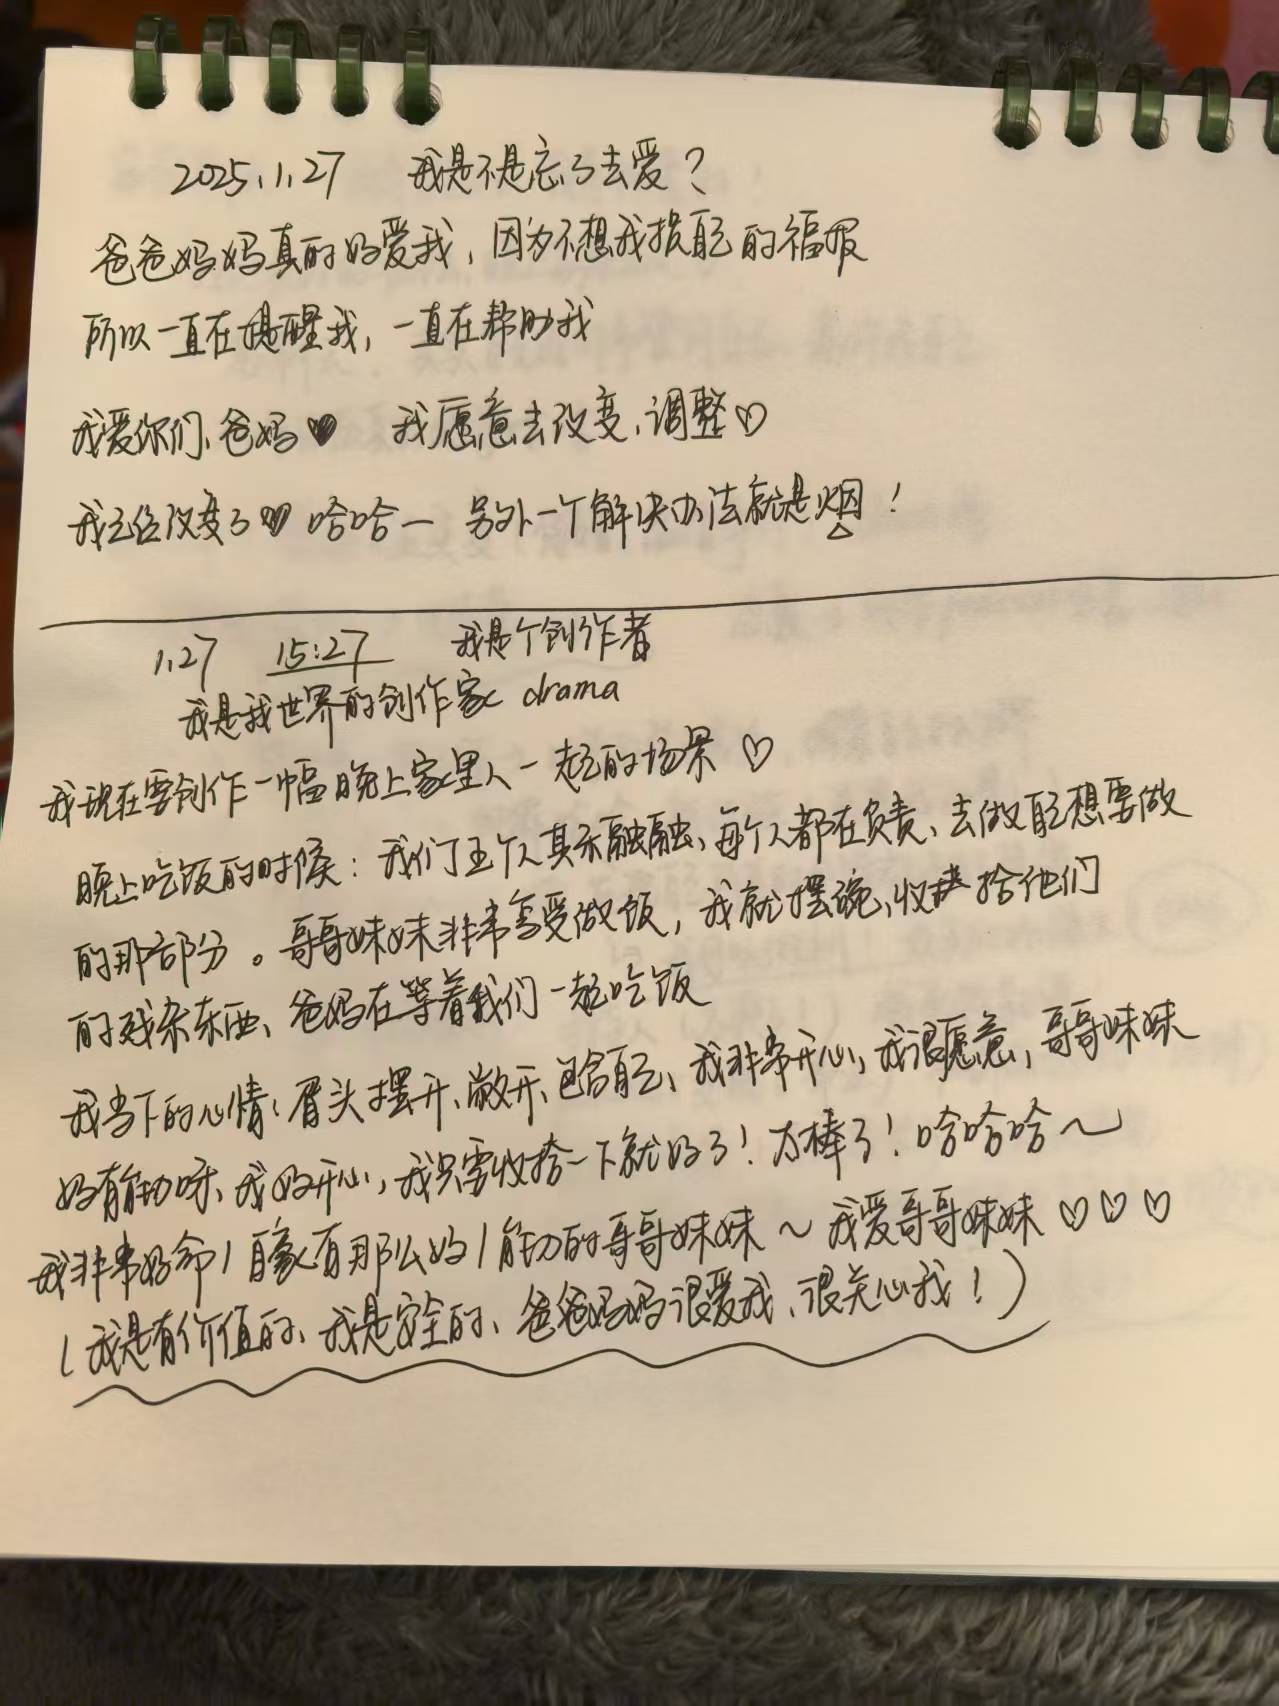 2025.1.27 我是不是忘了去爱？
爸爸妈妈真的好爱我，因为不想我损自己的福报
所以一直在提醒我，一直在帮助我
我爱你们、爸妈♥ 我愿意去改变、调整♡
我已经改变了♥ 哈哈— 另外一个解决办法就是烟！
1.27 15:27 我是个创作者
我是我世界的创作家 drama
我现在要创作一幅晚上家里人一起的场景♡
晚上吃饭的时候：我们五个人其乐融融、每个人都在负责、去做自己想要做
的那部分。哥哥妹妹非常享受做饭，我就摆碗、收拾他们
的残杂东西、爸妈在等着我们一起吃饭
我当下的心情：眉头摆开、敞开、包含自己、我非常开心，我很愿意，哥哥妹妹
好有能力呀、我好开心，我只需收拾一下就好了！太棒了！哈哈哈～
我非常好命！自家有那么好！能力的哥哥妹妹～我爱哥哥妹妹♡♡♡
（我是有价值的、我是安全的、爸爸妈妈很爱我、很关心我！）